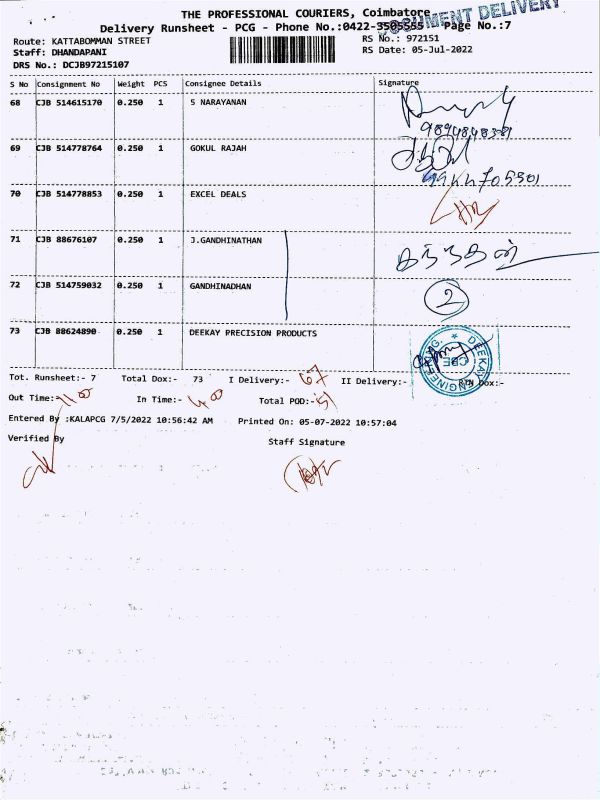 THE PROFESSIONAL COURIERS, Coimbatore.
DOCUMENT DELIVERY
Delivery Runsheet - PCG - Phone No.:0422-3505555 Page No.:7
Route: KATTABOMMAN STREET RS No.: 972151
Staff: DHANDAPANI RS Date: 05-Jul-2022
DRS No.: DCJB97215107
S No Consignment No Weight PCS Consignee Details Signature
68 CJB 514615170 0.250 1 S NARAYANAN
69 CJB 514778764 0.250 1 GOKUL RAJAH
70 CJB 514778853 0.250 1 EXCEL DEALS
71 CJB 88676107 0.250 1 J.GANDHINATHAN
72 CJB 514759032 0.250 1 GANDHINADHAN 2
73 CJB 88624890 0.250 1 DEEKAY PRECISION PRODUCTS
DEEKAY ENGINEERING CBE
Tot. Runsheet:- 7 Total Dox:- 73 I Delivery:- 67 II Delivery:- RTN Dox:-
Out Time:- 11.00 In Time:- 4.00 Total POD:- 51
Entered By :KALAPCG 7/5/2022 10:56:42 AM Printed On: 05-07-2022 10:57:04
Verified By Staff Signature